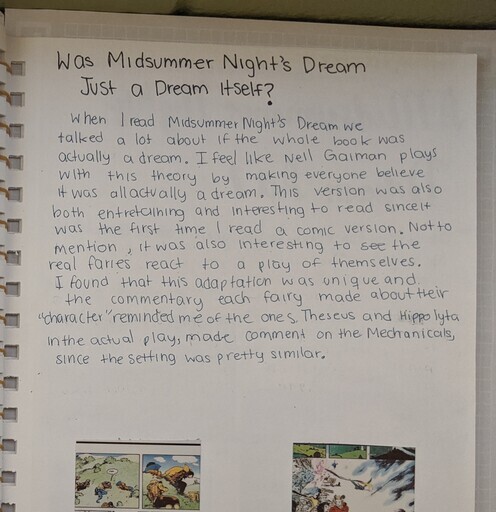 Was Midsummer Night's Dream
Just a Dream Itself?
When I read Midsummer Night's Dream we
talked a lot about if the whole book was
actually a dream. I feel like Neil Gaiman plays
with this theory by making everyone believe
it was all actually a dream. This version was also
both entretaining and interesting to read since it
was the first time I read a comic version. Not to
mention, it was also interesting to see the
real faries react to a play of themselves.
I found that this adaptation was unique and
the commentary each fairy made about their
"character" reminded me of the ones Theseus and Hippolyta
in the actual play, made comment on the Mechanicals,
since the setting was pretty similar.